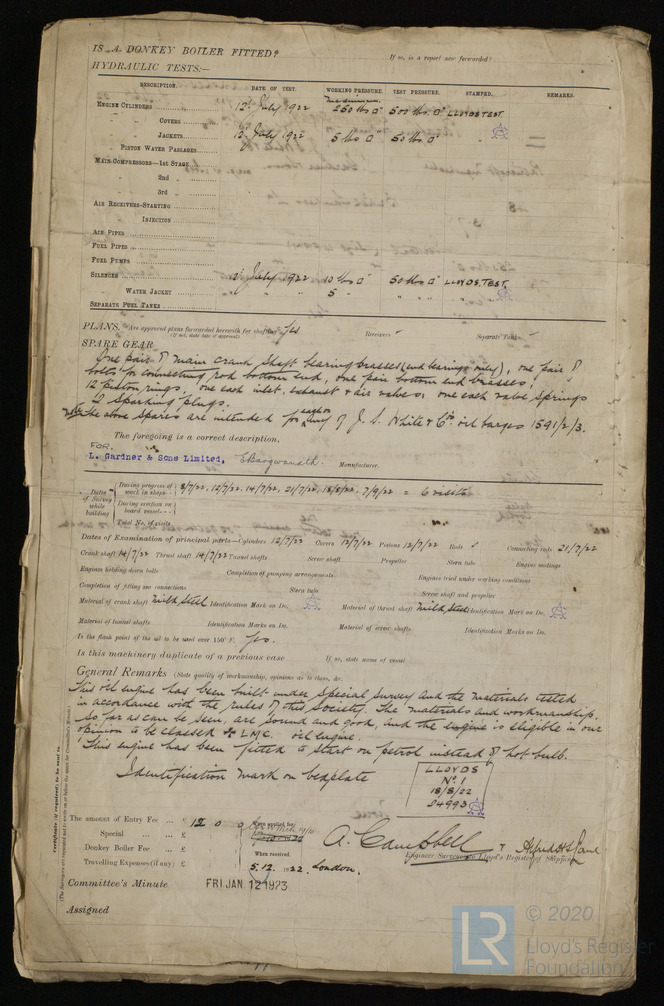 IS A DONKEY BOILER FITTED? If so, is a report now forwarded?
HYDRAULIC TESTS:—
DESCRIPTION. DATE OF TEST. WORKING PRESSURE. TEST PRESSURE. STAMPED. REMARKS.
ENGINE CYLINDERS 12th July 1922 250 lbs □" 500 lbs □" LLOYDS TEST.
" COVERS " " "
" JACKETS 12th July 1922 5 lbs □" 50 lbs □" "
" PISTON WATER PASSAGES
MAIN COMPRESSORS—1st STAGE
" 2nd "
" 3rd "
AIR RECEIVERS—STARTING
" INJECTION
AIR PIPES
FUEL PIPES
FUEL PUMPS
SILENCER July 1922 10 lbs □" 50 lbs □" LLOYDS TEST.
" WATER JACKET " " 5 " " " " "
SEPARATE FUEL TANKS
PLANS. Are approved plans forwarded herewith for shafting yes Receivers Separate Tanks
(If not, state date of approval)
SPARE GEAR
One pair of main crank shaft bearing brasses (end bearings only), one pair of
bolts for connecting rod bottom end, one pair bottom end brasses,
12 piston rings, one each inlet, exhaust & air valves, one each valve springs
2 sparking plugs.
Note The above spares are intended for each of J. S. White & Co. oil barges 1591/2/3.
The foregoing is a correct description,
FOR.
L. Gardner & Sons Limited, Manufacturer.
Dates of Survey while building
During progress of work in shops - - 8/7/22, 12/7/22, 14/7/22, 21/7/22, 18/8/22, 7/9/22 = 6 visits
During erection on board vessel - - -
Total No. of visits
Dates of Examination of principal parts—Cylinders 12/7/22 Covers 12/7/22 Pistons 12/7/22 Rods Connecting rods 21/7/22
Crank shaft 14/7/22 Thrust shaft 14/7/22 Tunnel shafts Screw shaft Propeller Stern tube Engine seatings
Engines holding down bolts Completion of pumping arrangements Engines tried under working conditions
Completion of fitting sea connections Stern tube Screw shaft and propeller
Material of crank shaft Mild Steel Identification Mark on Do. Material of thrust shaft Mild Steel Identification Mark on Do.
Material of tunnel shafts Identification Marks on Do. Material of screw shafts Identification Marks on Do.
Is the flash point of the oil to be used over 150° F. Yes.
Is this machinery duplicate of a previous case If so, state name of vessel
General Remarks (State quality of workmanship, opinions as to class, &c.
This oil engine has been built under special survey and the materials tested
in accordance with the rules of this Society. The materials and workmanship,
so far as can be seen, are sound and good, and the engine is eligible in our
opinion to be classed ✠ LMC. oil engine.
This engine has been fitted to start on petrol instead of hot bulb.
Identification mark on bedplate
LLOYDS
No. 1
18/8/22
S4993
Certificate (if required) to be sent to
(The Surveyors are requested not to write on or below the space for Committee's Minute.)
The amount of Entry Fee ... £ 12 0 0 When applied for,
Special ... ... £
Donkey Boiler Fee ... £ When received,
Travelling Expenses (if any) £ 5.12.1922. London.
A. Campbell & Alfred
Engineer Surveyor to Lloyd's Register of Shipping.
Committee's Minute FRI. JAN 12 1923
Assigned
LR © 2020
Lloyd's Register
Foundation